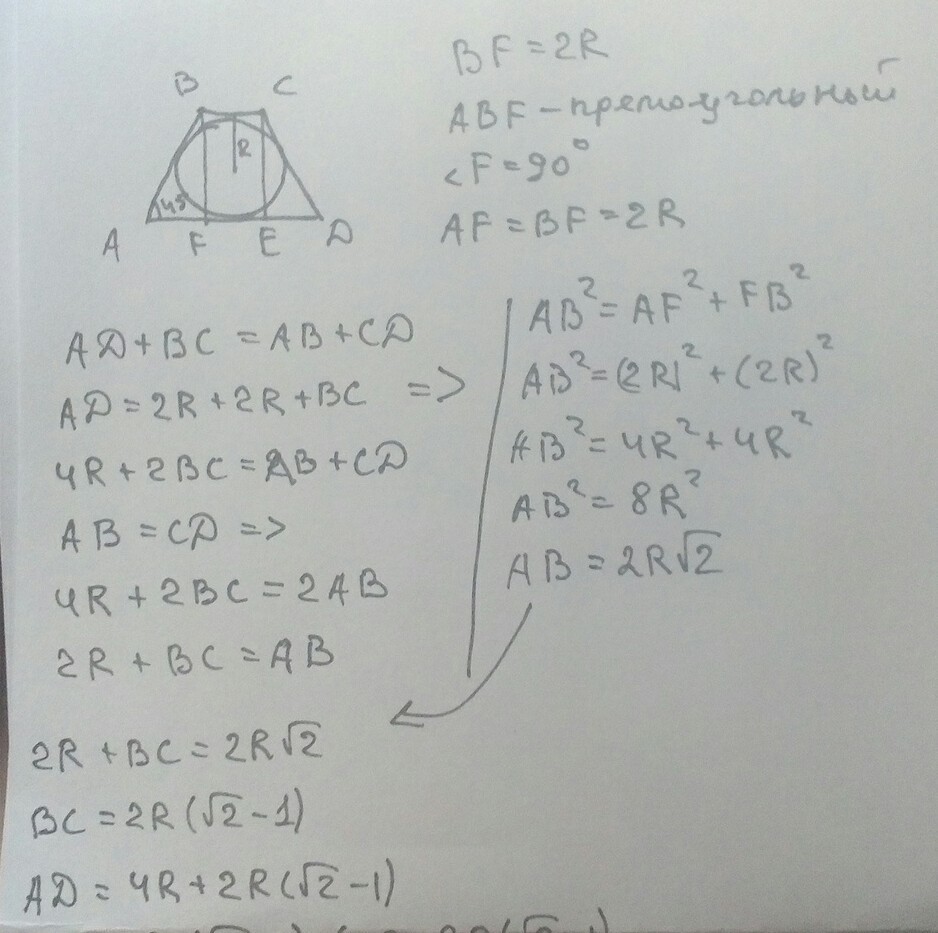 B C
R
45
A F E D
BF = 2R
ABF – прямоугольный
∠F = 90°
AF = BF = 2R
AD + BC = AB + CD
AD = 2R + 2R + BC =>
4R + 2BC = AB + CD
AB = CD =>
4R + 2BC = 2AB
2R + BC = AB
AB² = AF² + FB²
AB² = (2R)² + (2R)²
AB² = 4R² + 4R²
AB² = 8R²
AB = 2R√2
2R + BC = 2R√2
BC = 2R(√2 - 1)
AD = 4R + 2R(√2 - 1)